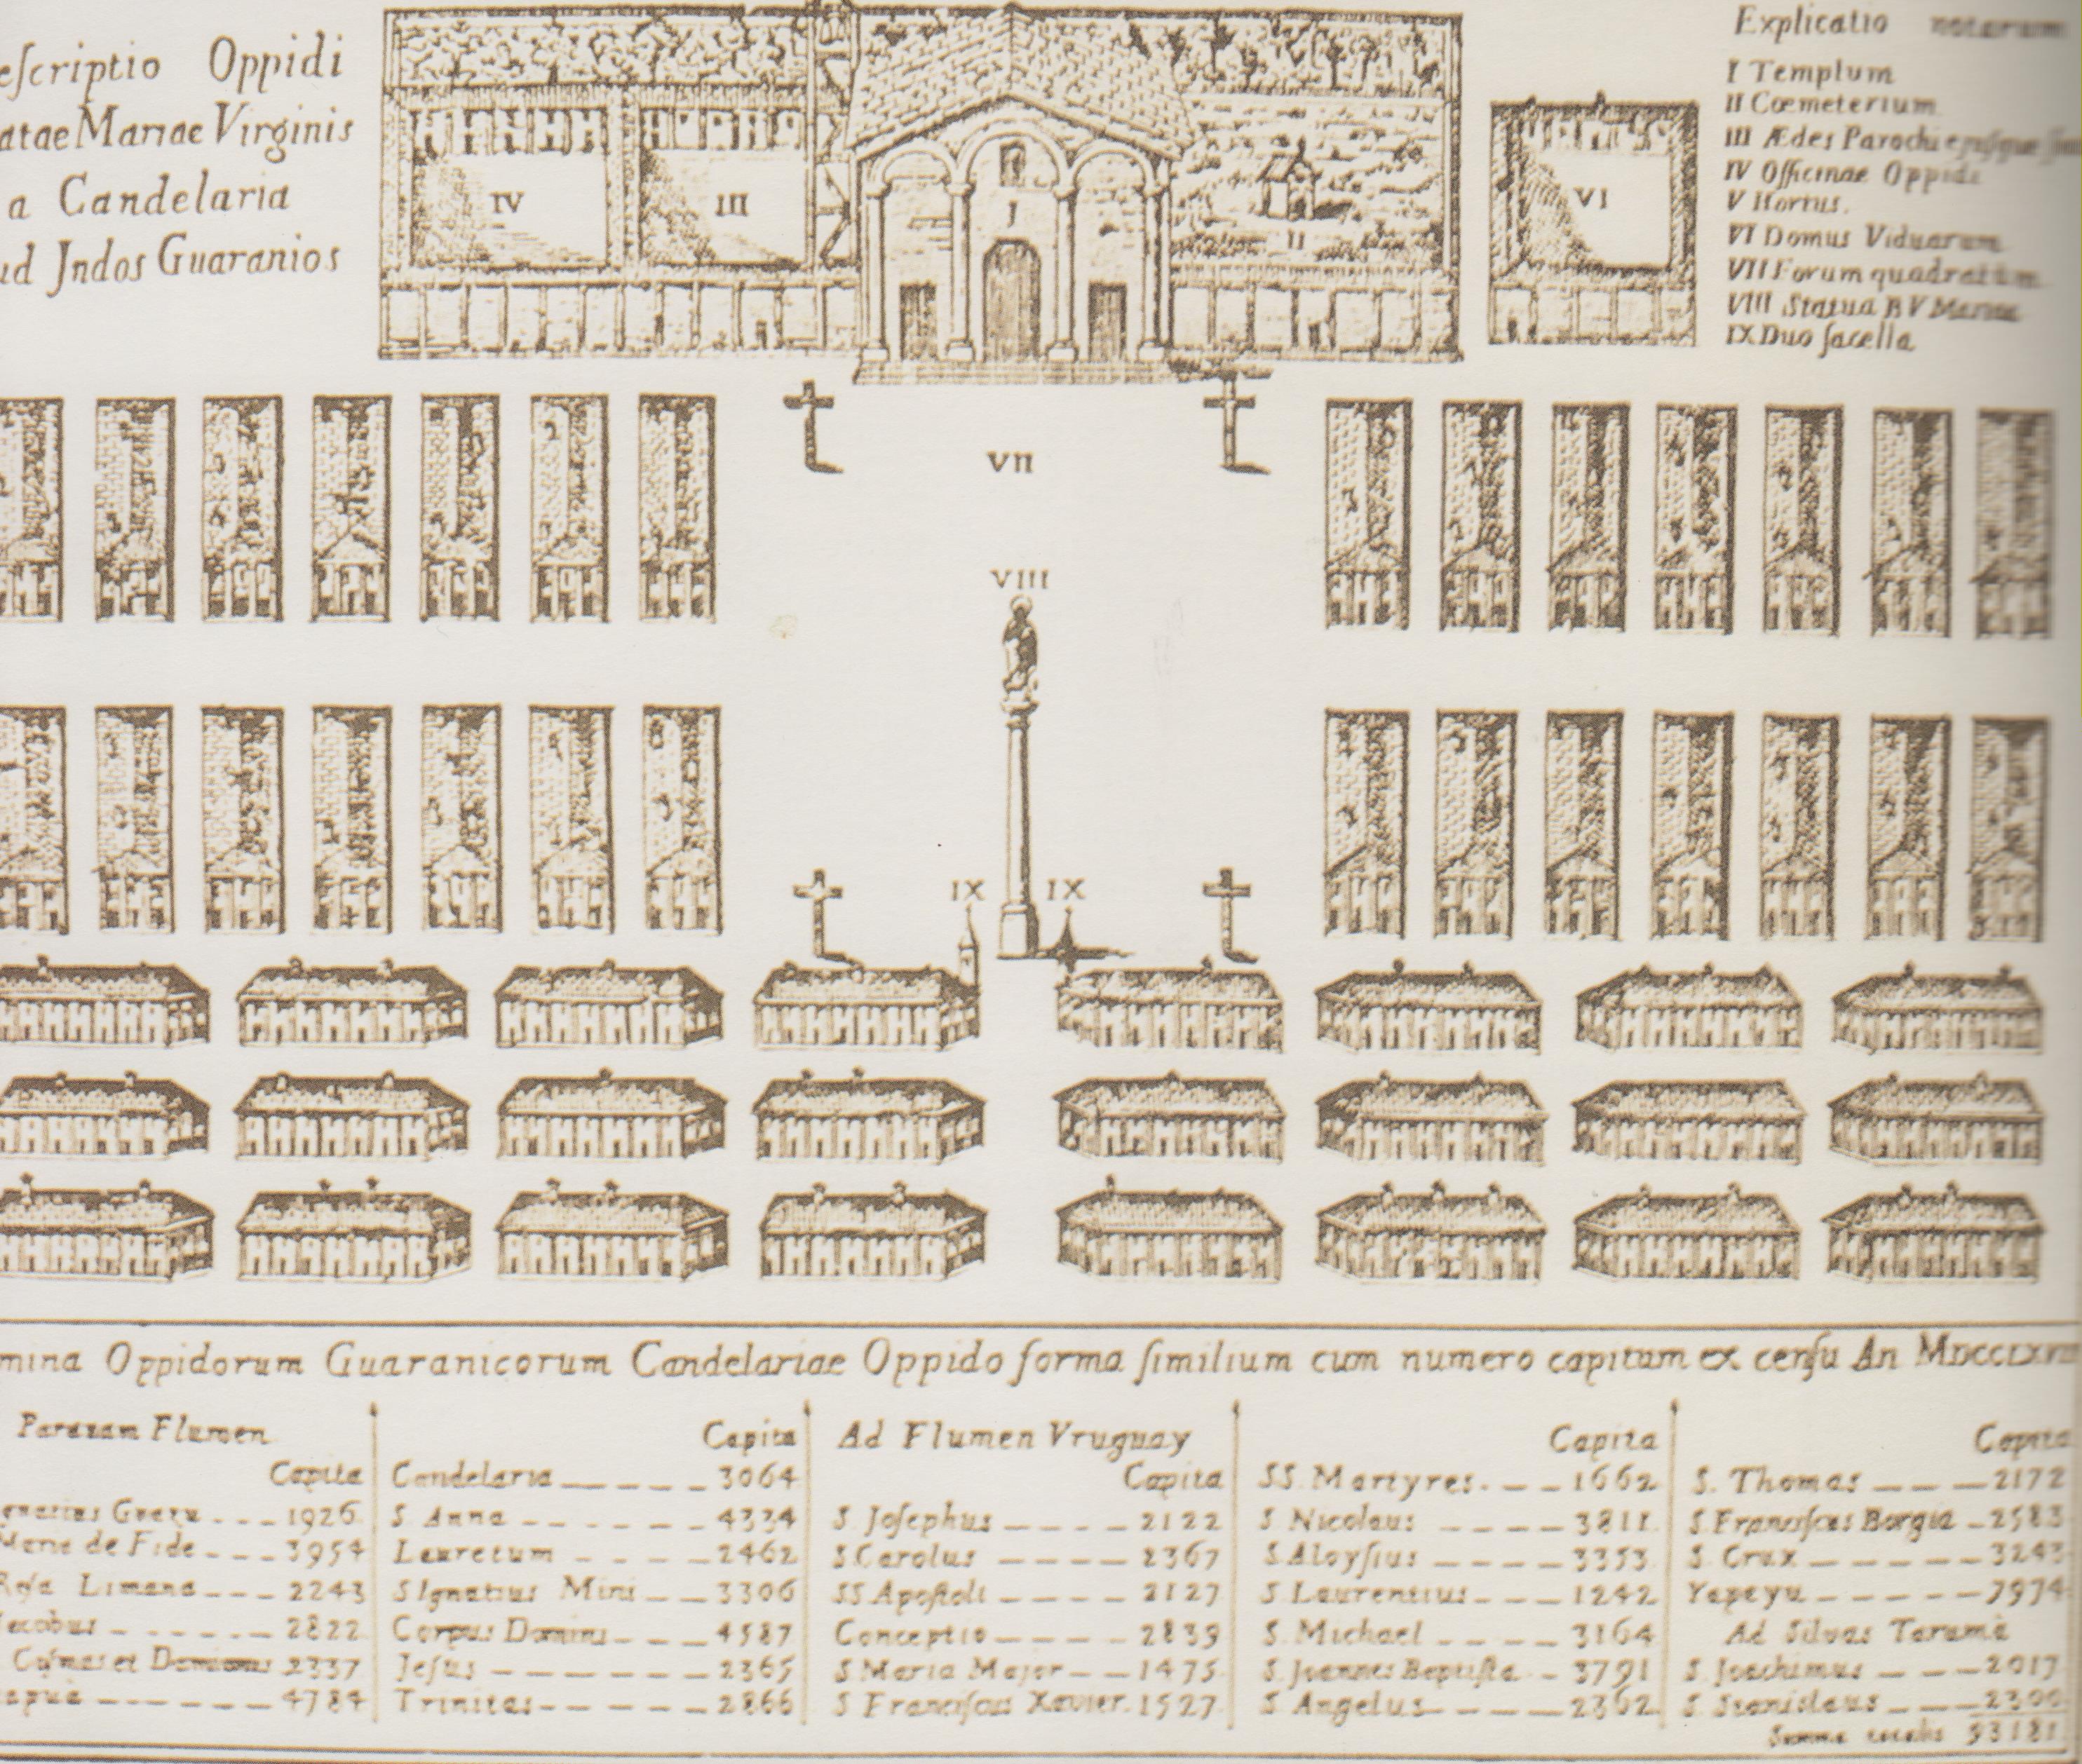 eſcriptio Oppidi
atae Mariae Virginis
a Candelaria
ud Jndos Guaranios
Explicatio notarum
I Templum
II Cœmeterium
III Ædes Parochi ejuſque
IV Officinae Oppidi
V Hortus.
VI Domus Viduarum
VII Forum quadratum
VIII Statua B V Mariae
IX Duo ſacella
IV
III
I
II
VI
VII
VIII
IX IX
mina Oppidorum Guaranicorum Candelariae Oppido forma ſimilium cum numero capitum ex cenſu An
Paranam Flumen
Capita
Guazu 1926
Marie de Fide 3954
Roſa Limana 2243
Jacobus 2822
Coſmas et Damianus 2337
apuà 4784
Capita
Candelaria 3064
S Anna 4334
Lauretum 2462
S Ignatius Mini 3306
Corpus Domini 4587
Jeſus 2365
Trinitas 2866
Ad Flumen Vruguay
Capita
S Joſephus 2122
S Carolus 2367
SS Apoſtoli 2127
Conceptio 2839
S Maria Major 1475
S Franciſcus Xavier. 1527
Capita
SS. Martyres. 1662
S Nicolaus 3811
S Aloyſius 3353
S Laurentius 1242
S. Michael 3164
S. Joannes Baptiſta 3791
S Angelus 2362
Capita
S. Thomas 2172
S Franciſcus Borgia 2583
S. Crux 3243
Yapeyu 7974
Ad Silvas Tarumà
S. Joachimus 2017
S. Stanislaus 2300
Summa totalis 93181